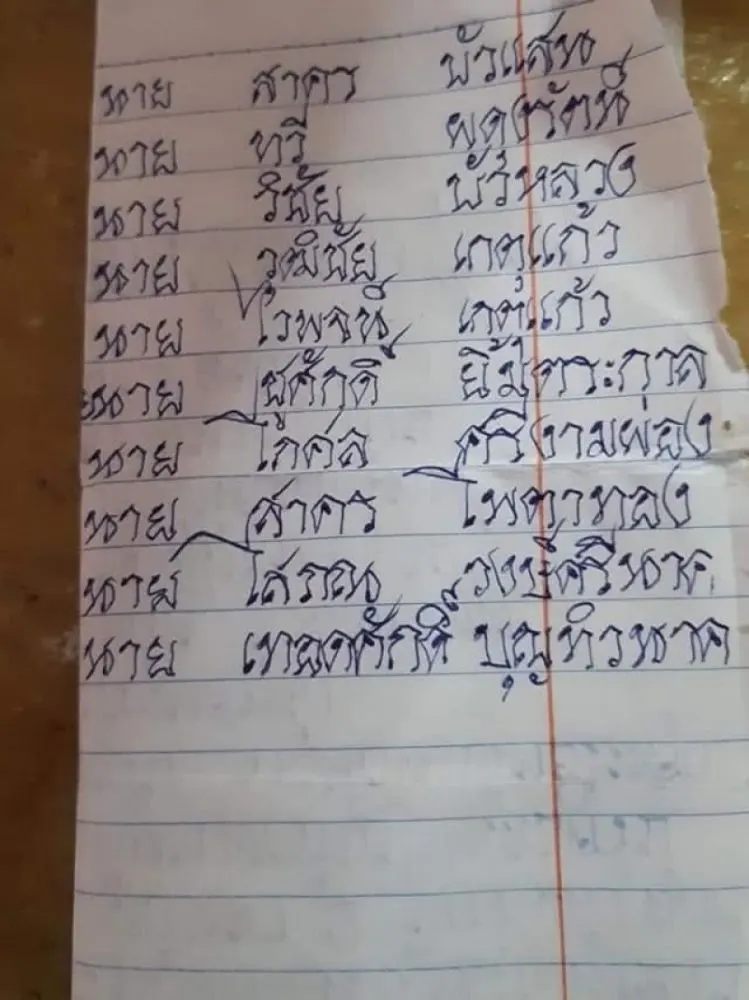 นาย สาคร บัวแสน
นาย ทวี ผดุงรัตน์
นาย วิชัย บัวหลวง
นาย วุฒิชัย เกตุแก้ว
นาย ไวพจน์ เกตุแก้ว
นาย ชูศักดิ์ ยิ้มตระกูล
นาย โกศล ศรีงามผ่อง
นาย สาคร ไพทาทอง
นาย โสภณ วงษ์ศรีนาค
นาย เทอดศักดิ์ บุญทิวนาค